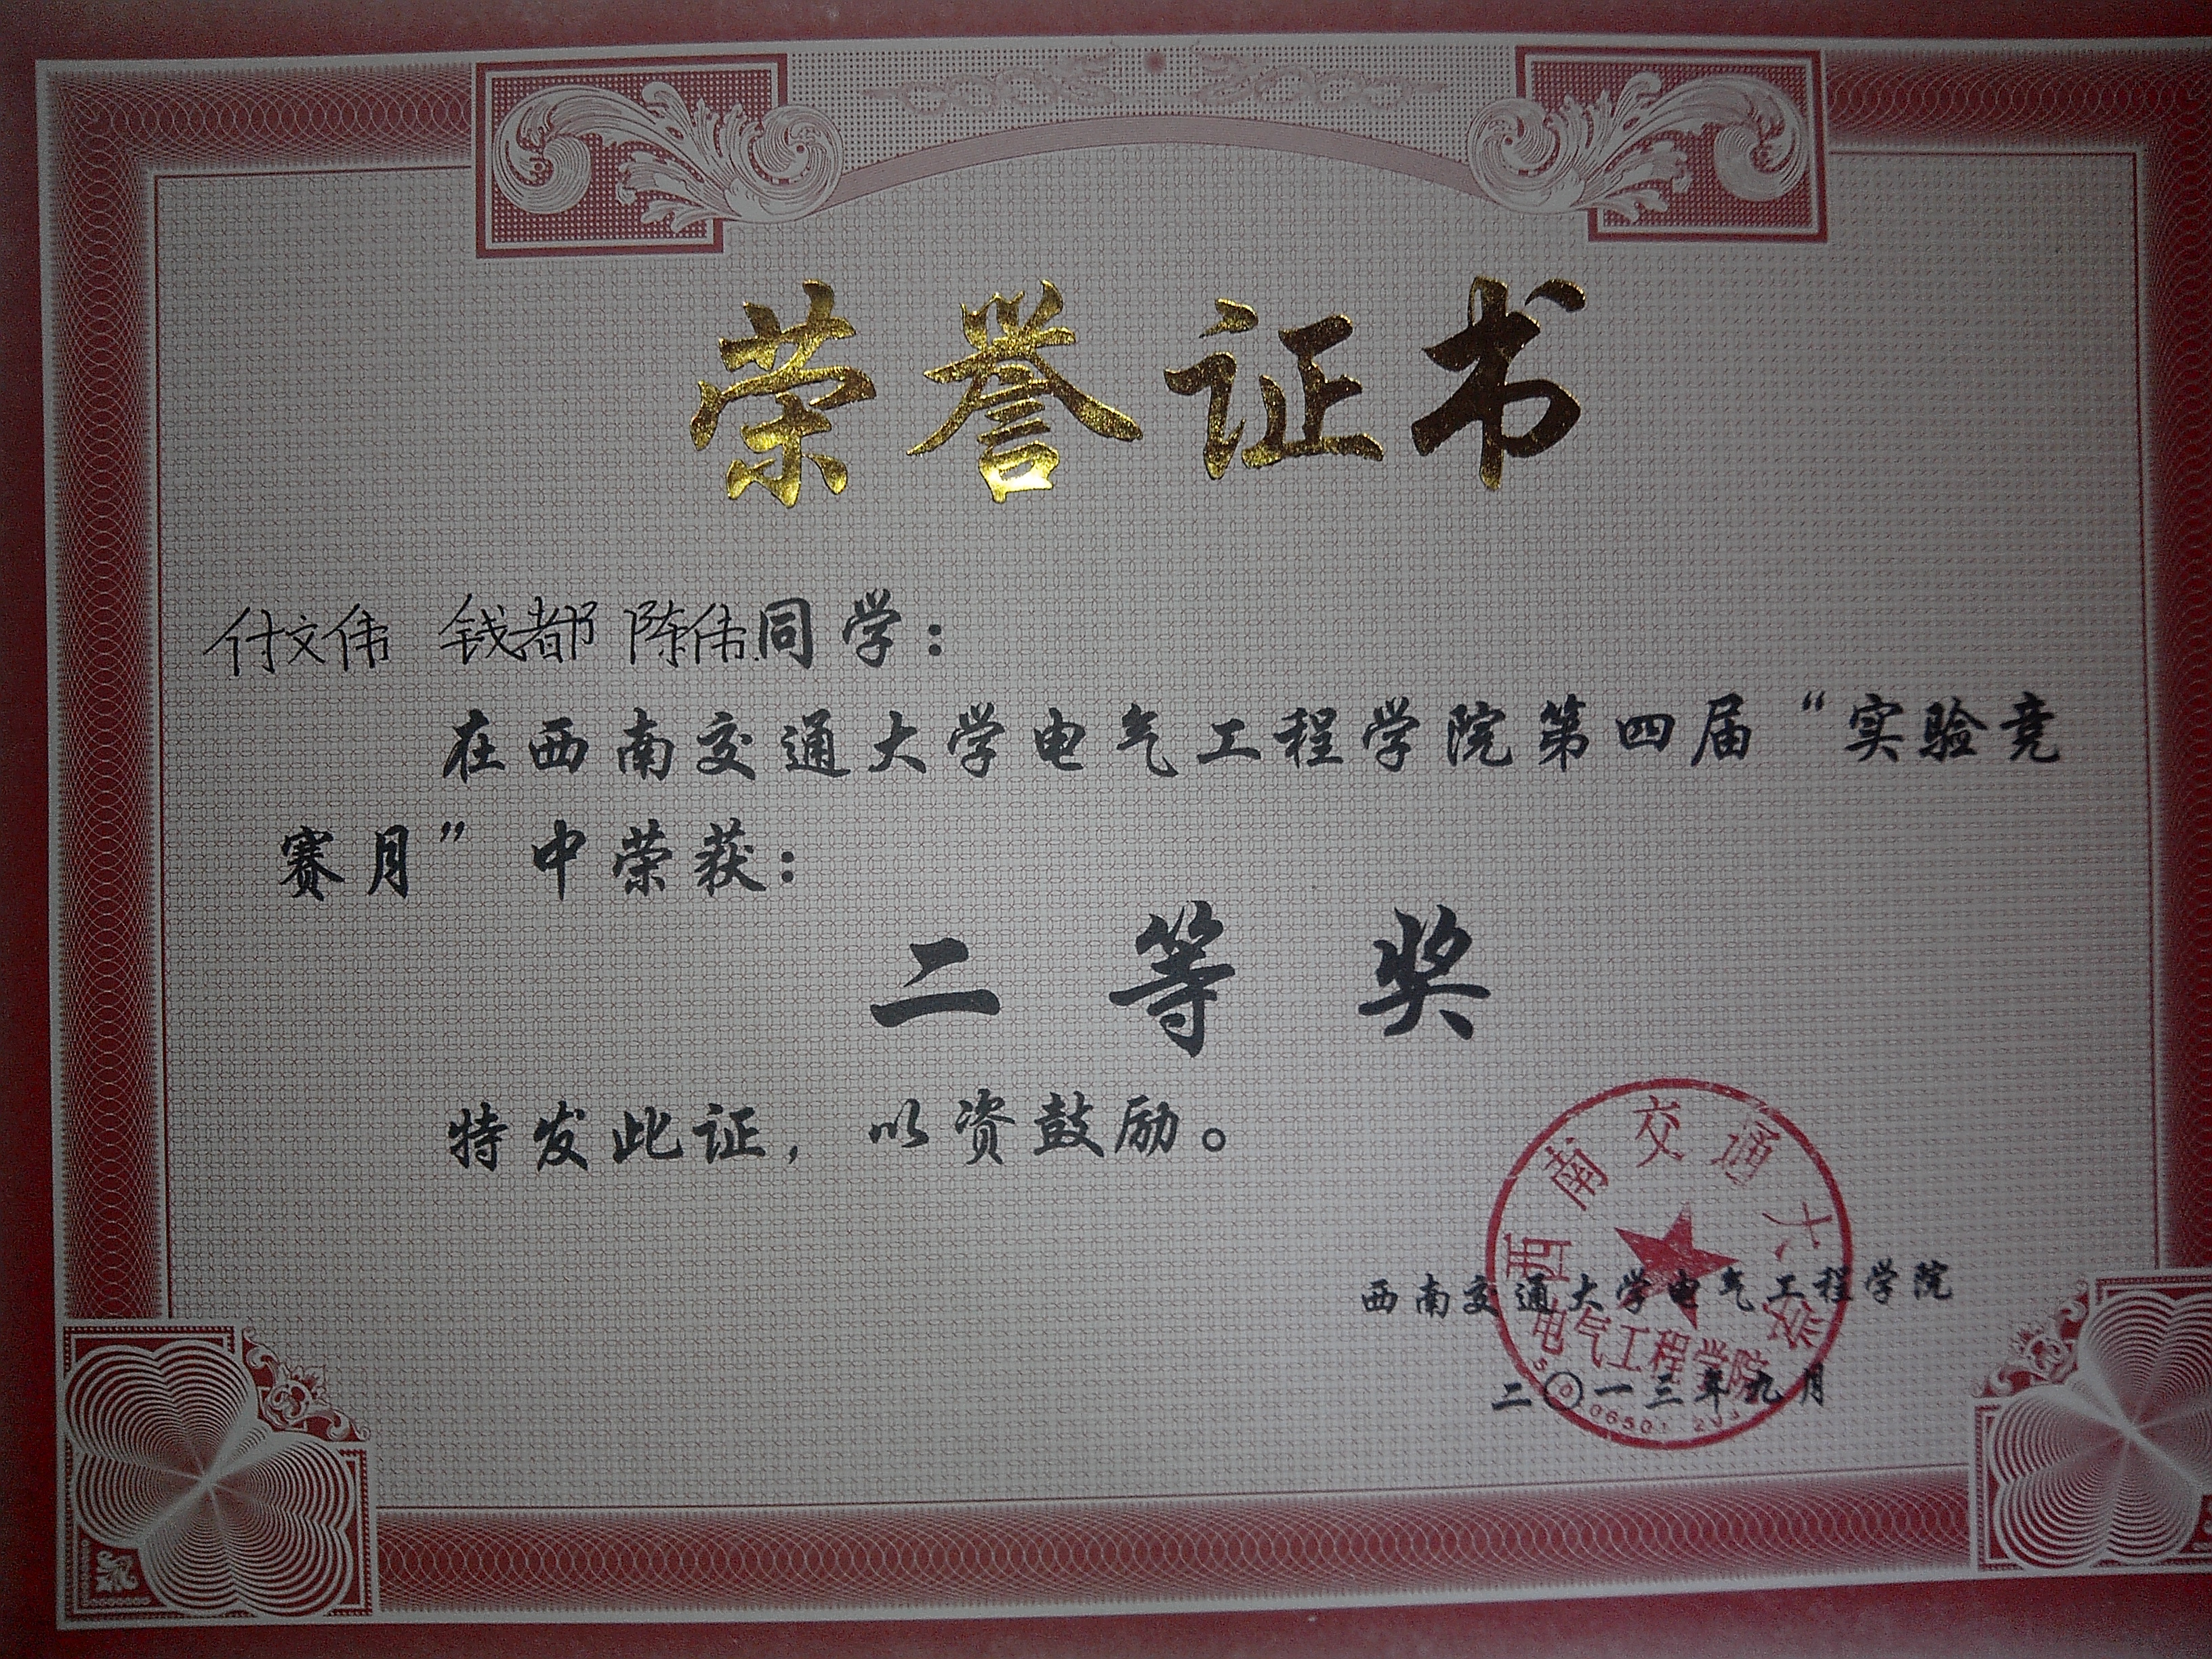 荣誉证书
付文伟 钱都 陈伟同学：
在西南交通大学电气工程学院第四届“实验竞
赛月”中荣获：
二等奖
特发此证，以资鼓励。
西南交通大学电气工程学院
二〇一三年九月
西南交通大学
电气工程学院